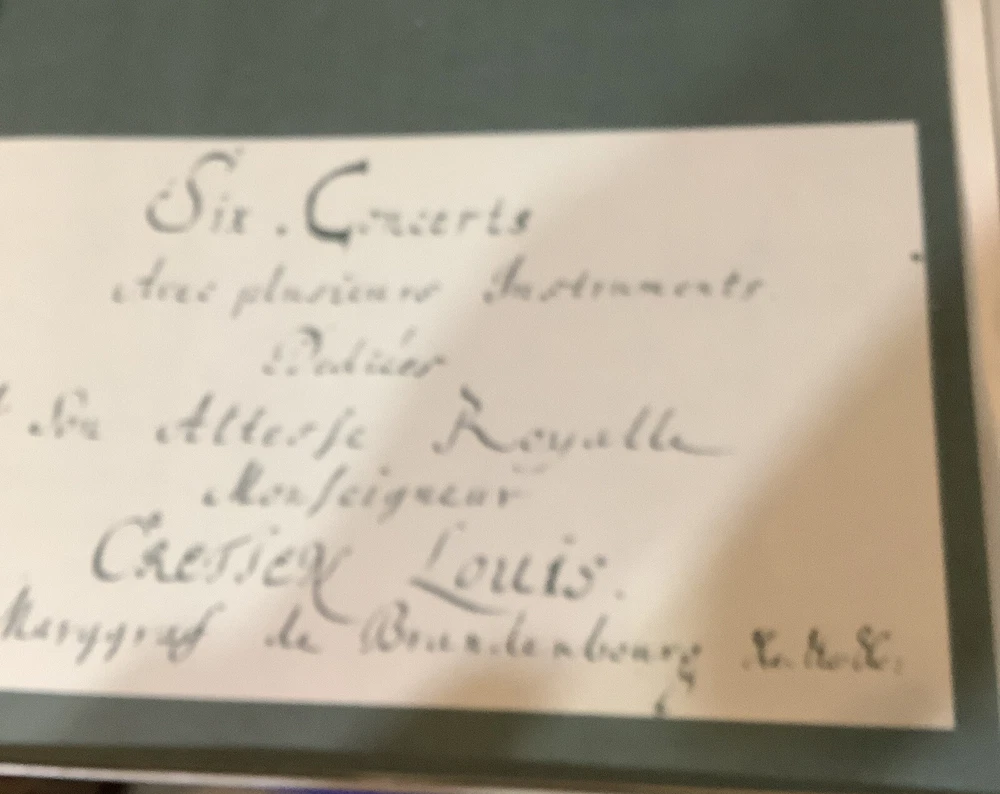 Six . Concerts
Avec plusieurs Instruments
Dediées
A Son Altesse Royalle
Monseigneur
Cretien Louis.
Marggraf de Brandenbourg &c. &c. &c: